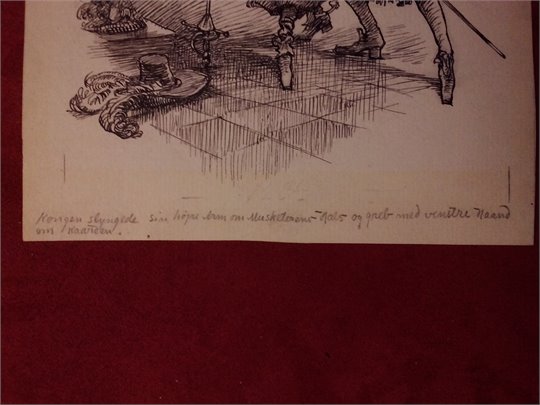 Kongen slyngede sin højre Arm om Musketerens Hals og greb med venstre Haand
om Kaarden.